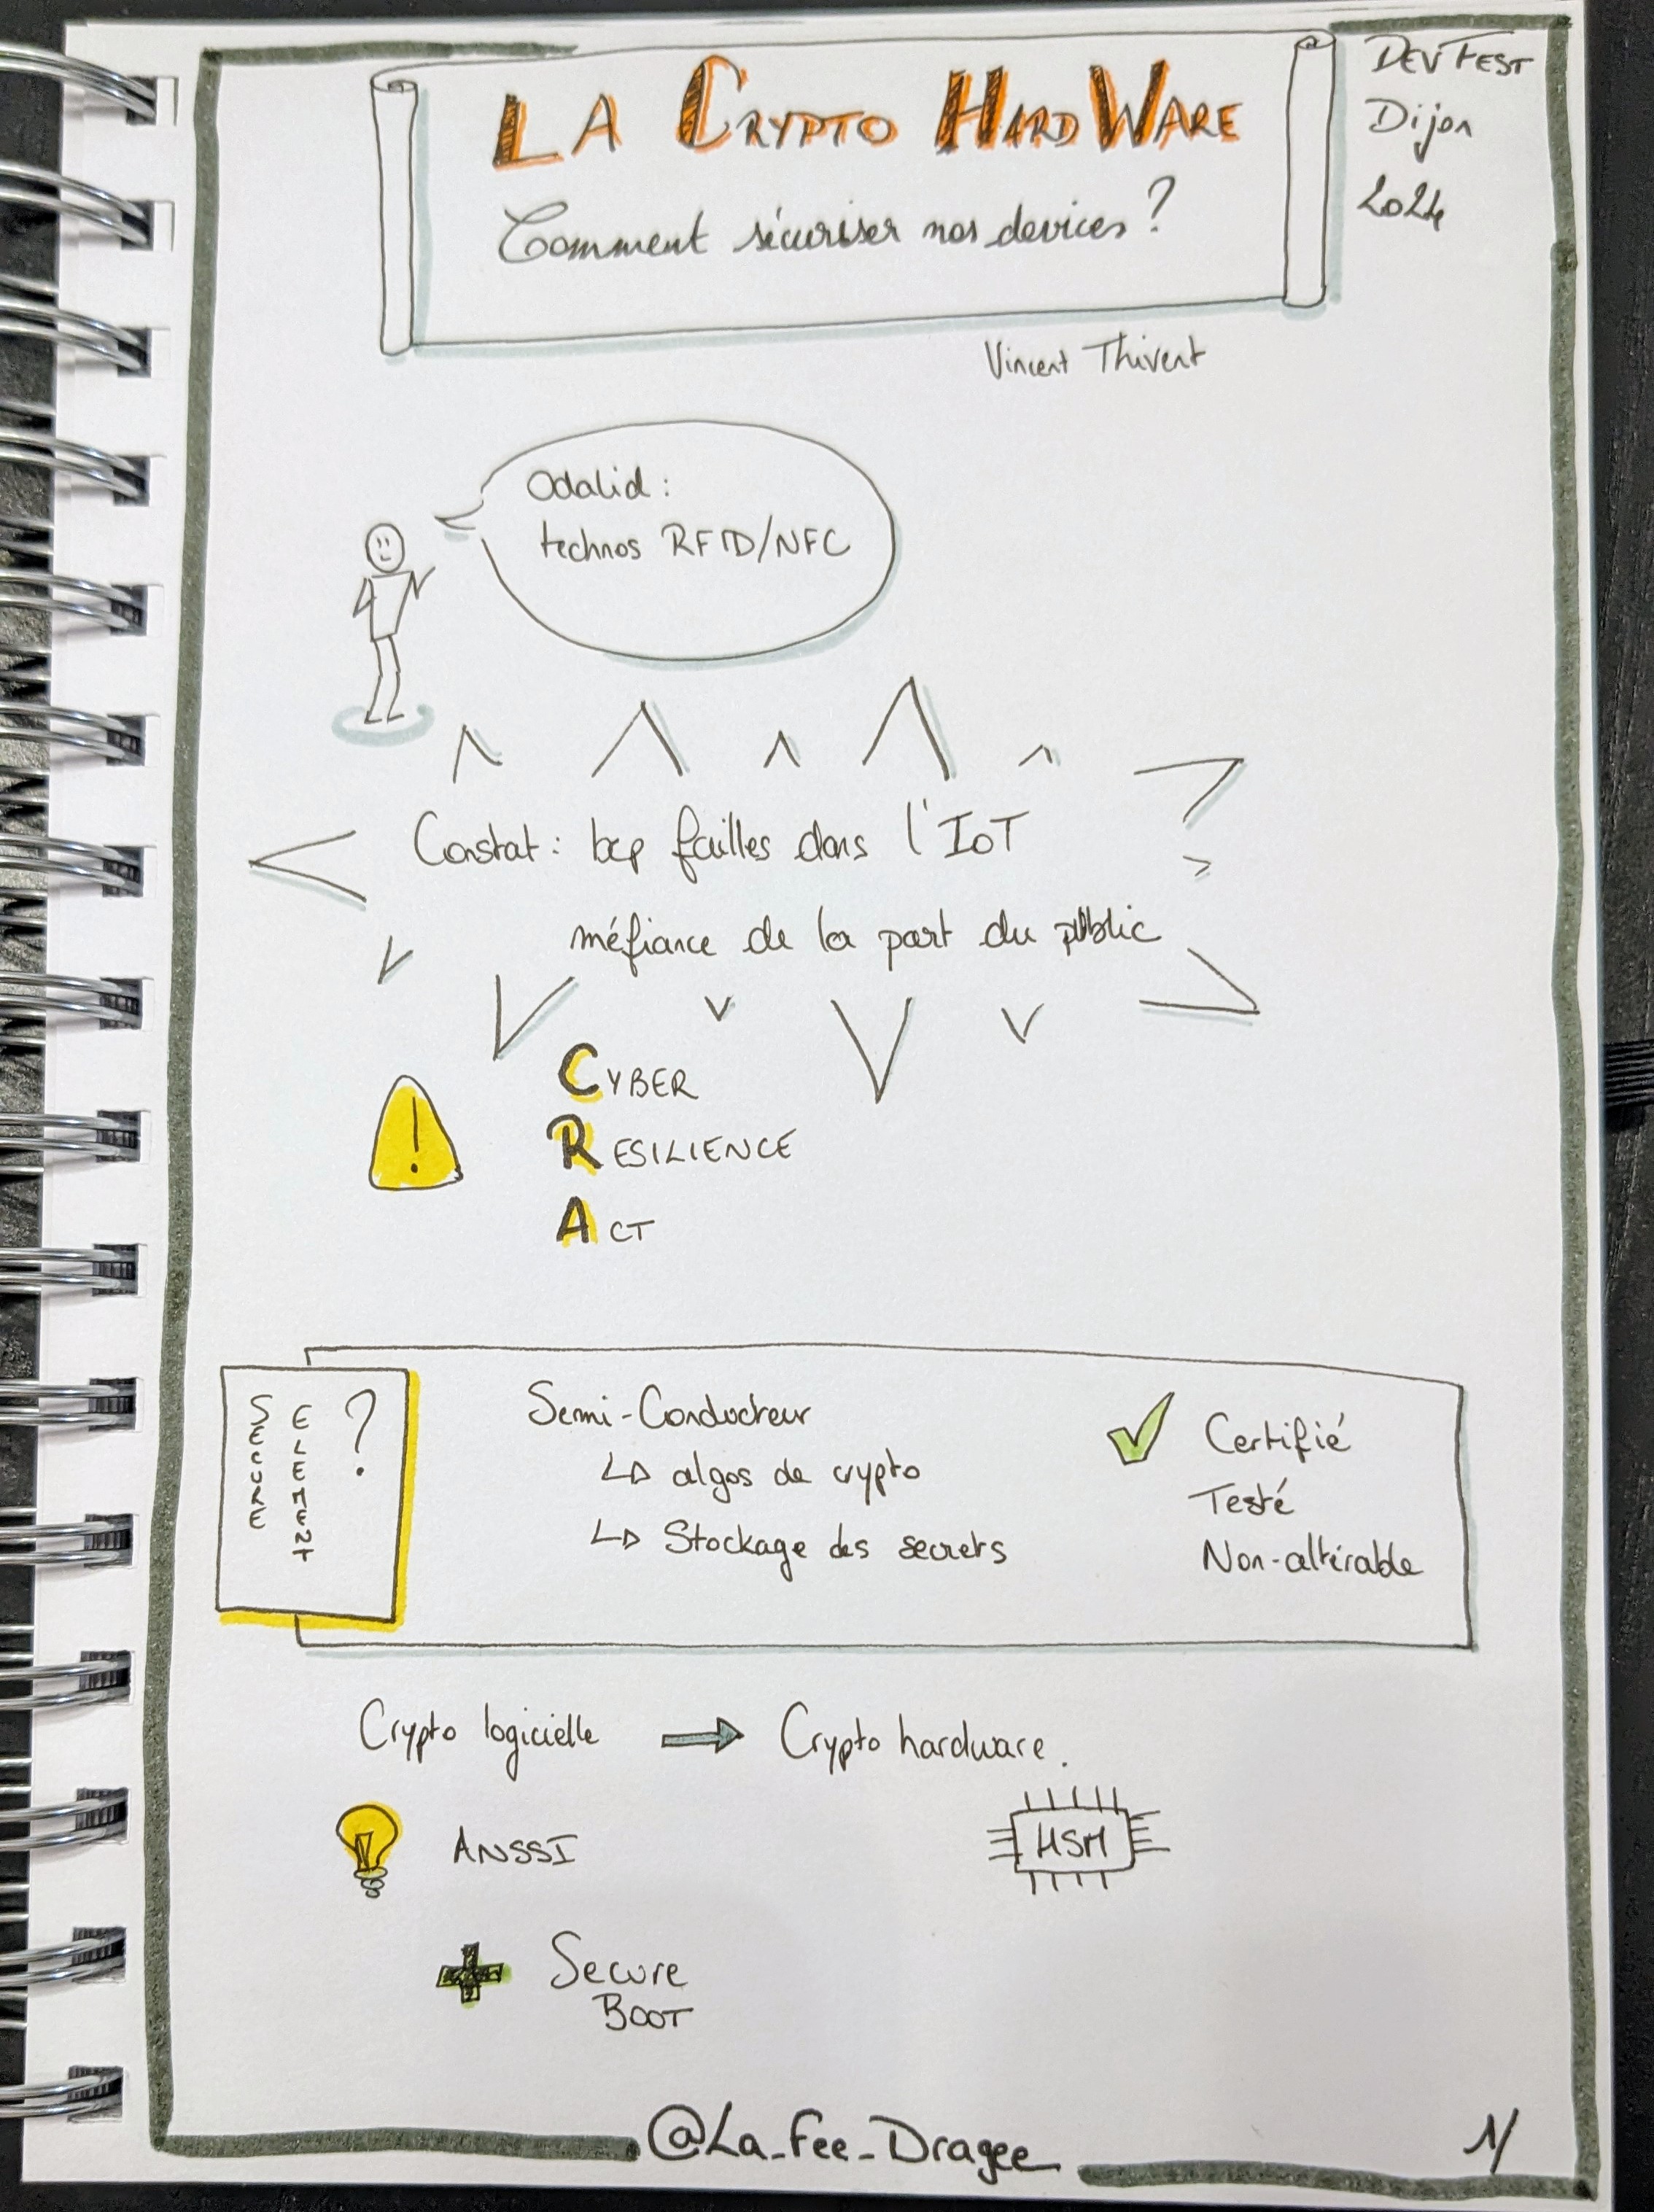 LA CRYPTO HARDWARE
Comment sécuriser nos devices ?
DEVFEST
Dijon
2024
Vincent Thivent
Odalid :
technos RFID/NFC
Constat : bcp failles dans l'IoT
méfiance de la part du public
CYBER
RESILIENCE
ACT
SECURE
ELEMENT
?
Semi-Conducteur
↳ algos de crypto
↳ Stockage des secrets
Certifié
Testé
Non-altérable
Crypto logicielle → Crypto hardware.
ANSSI
HSM
+ Secure
BOOT
@La_Fee_Dragee_
1/